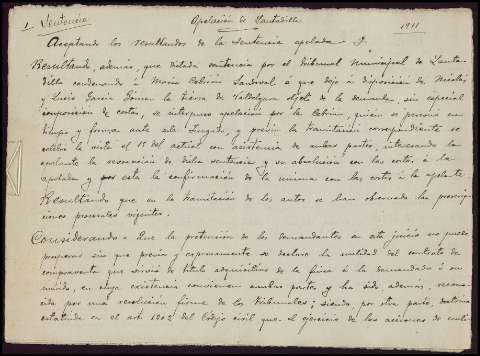 1. Sentencia
Apelación de Lantadilla
1911
Aceptando los resultandos de la sentencia apelada y.
Resultando, además, que dictada sentencia por el Tribunal Municipal de Lanta-
dilla condenando á María Cebrián Sandoval á que deje á disposición de Nicolás
y Lucio García Gómez la tierra de Valdelgara objeto de la demanda, sin especial
imposición de costas, se interpuso apelación por la Cebrián, quien se persona en
tiempo y forma ante este Juzgado, y previa la tramitación correspondiente se
celebró la vista el 15 del actual con asistencia de ambas partes, interesando la
apelante la revocación de dicha sentencia y su absolución con las costas á la
apelada y por esta la confirmación de la misma con las costas á la apelante.
Resultando que en la tramitación de los autos se han observado las prescrip-
ciones procesales vigentes.
Considerando = Que la pretensión de los demandantes en este juicio no puede
prosperar sin que previa y expresamente se declare la nulidad del contrato de
compraventa que sirvió de título adquisitivo de la finca á la demandada ó su
marido, en cuya existencia convienen ambas partes y ha sido además, recono-
cida por una resolución firme de los Tribunales; siendo por otra parte, doctrina
estatuida en el art. 1302 del Código civil que el ejercicio de las acciones de nuli-